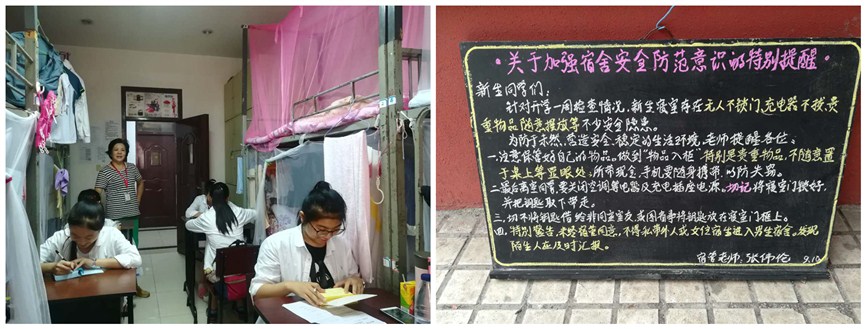 ·关于加强宿舍安全防范意识的特别提醒·
新生同学们：
针对开学一周检查情况，新生寝室存在无人不锁门、充电器不拔、贵
重物品随意摆放等不少安全隐患。
为防于未然，营造安全、稳定的生活环境，老师提醒各位。
一.注意保管好自己的物品。做到“物品入柜”特别是贵重物品，不随意置
于桌上等显眼处。所带现金、手机要随身携带，以防失窃。
二.最后离室同学，要关闭空调等电器及充电插座电源。切记将寝室门锁好，
并把钥匙取下带走。
三.切不将钥匙借给非同室室友，或图省事将钥匙放在寝室门框上。
四.特别警告：未经宿管同意，不得私带外人或女住宿生进入男生宿舍。发现
陌生人应及时汇报。
宿管老师：张伟伦
9.10